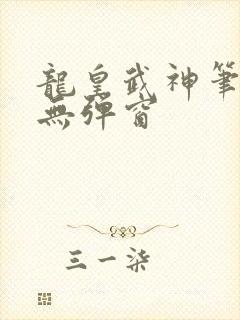 龍皇武神筆
無彈窗
三一柒